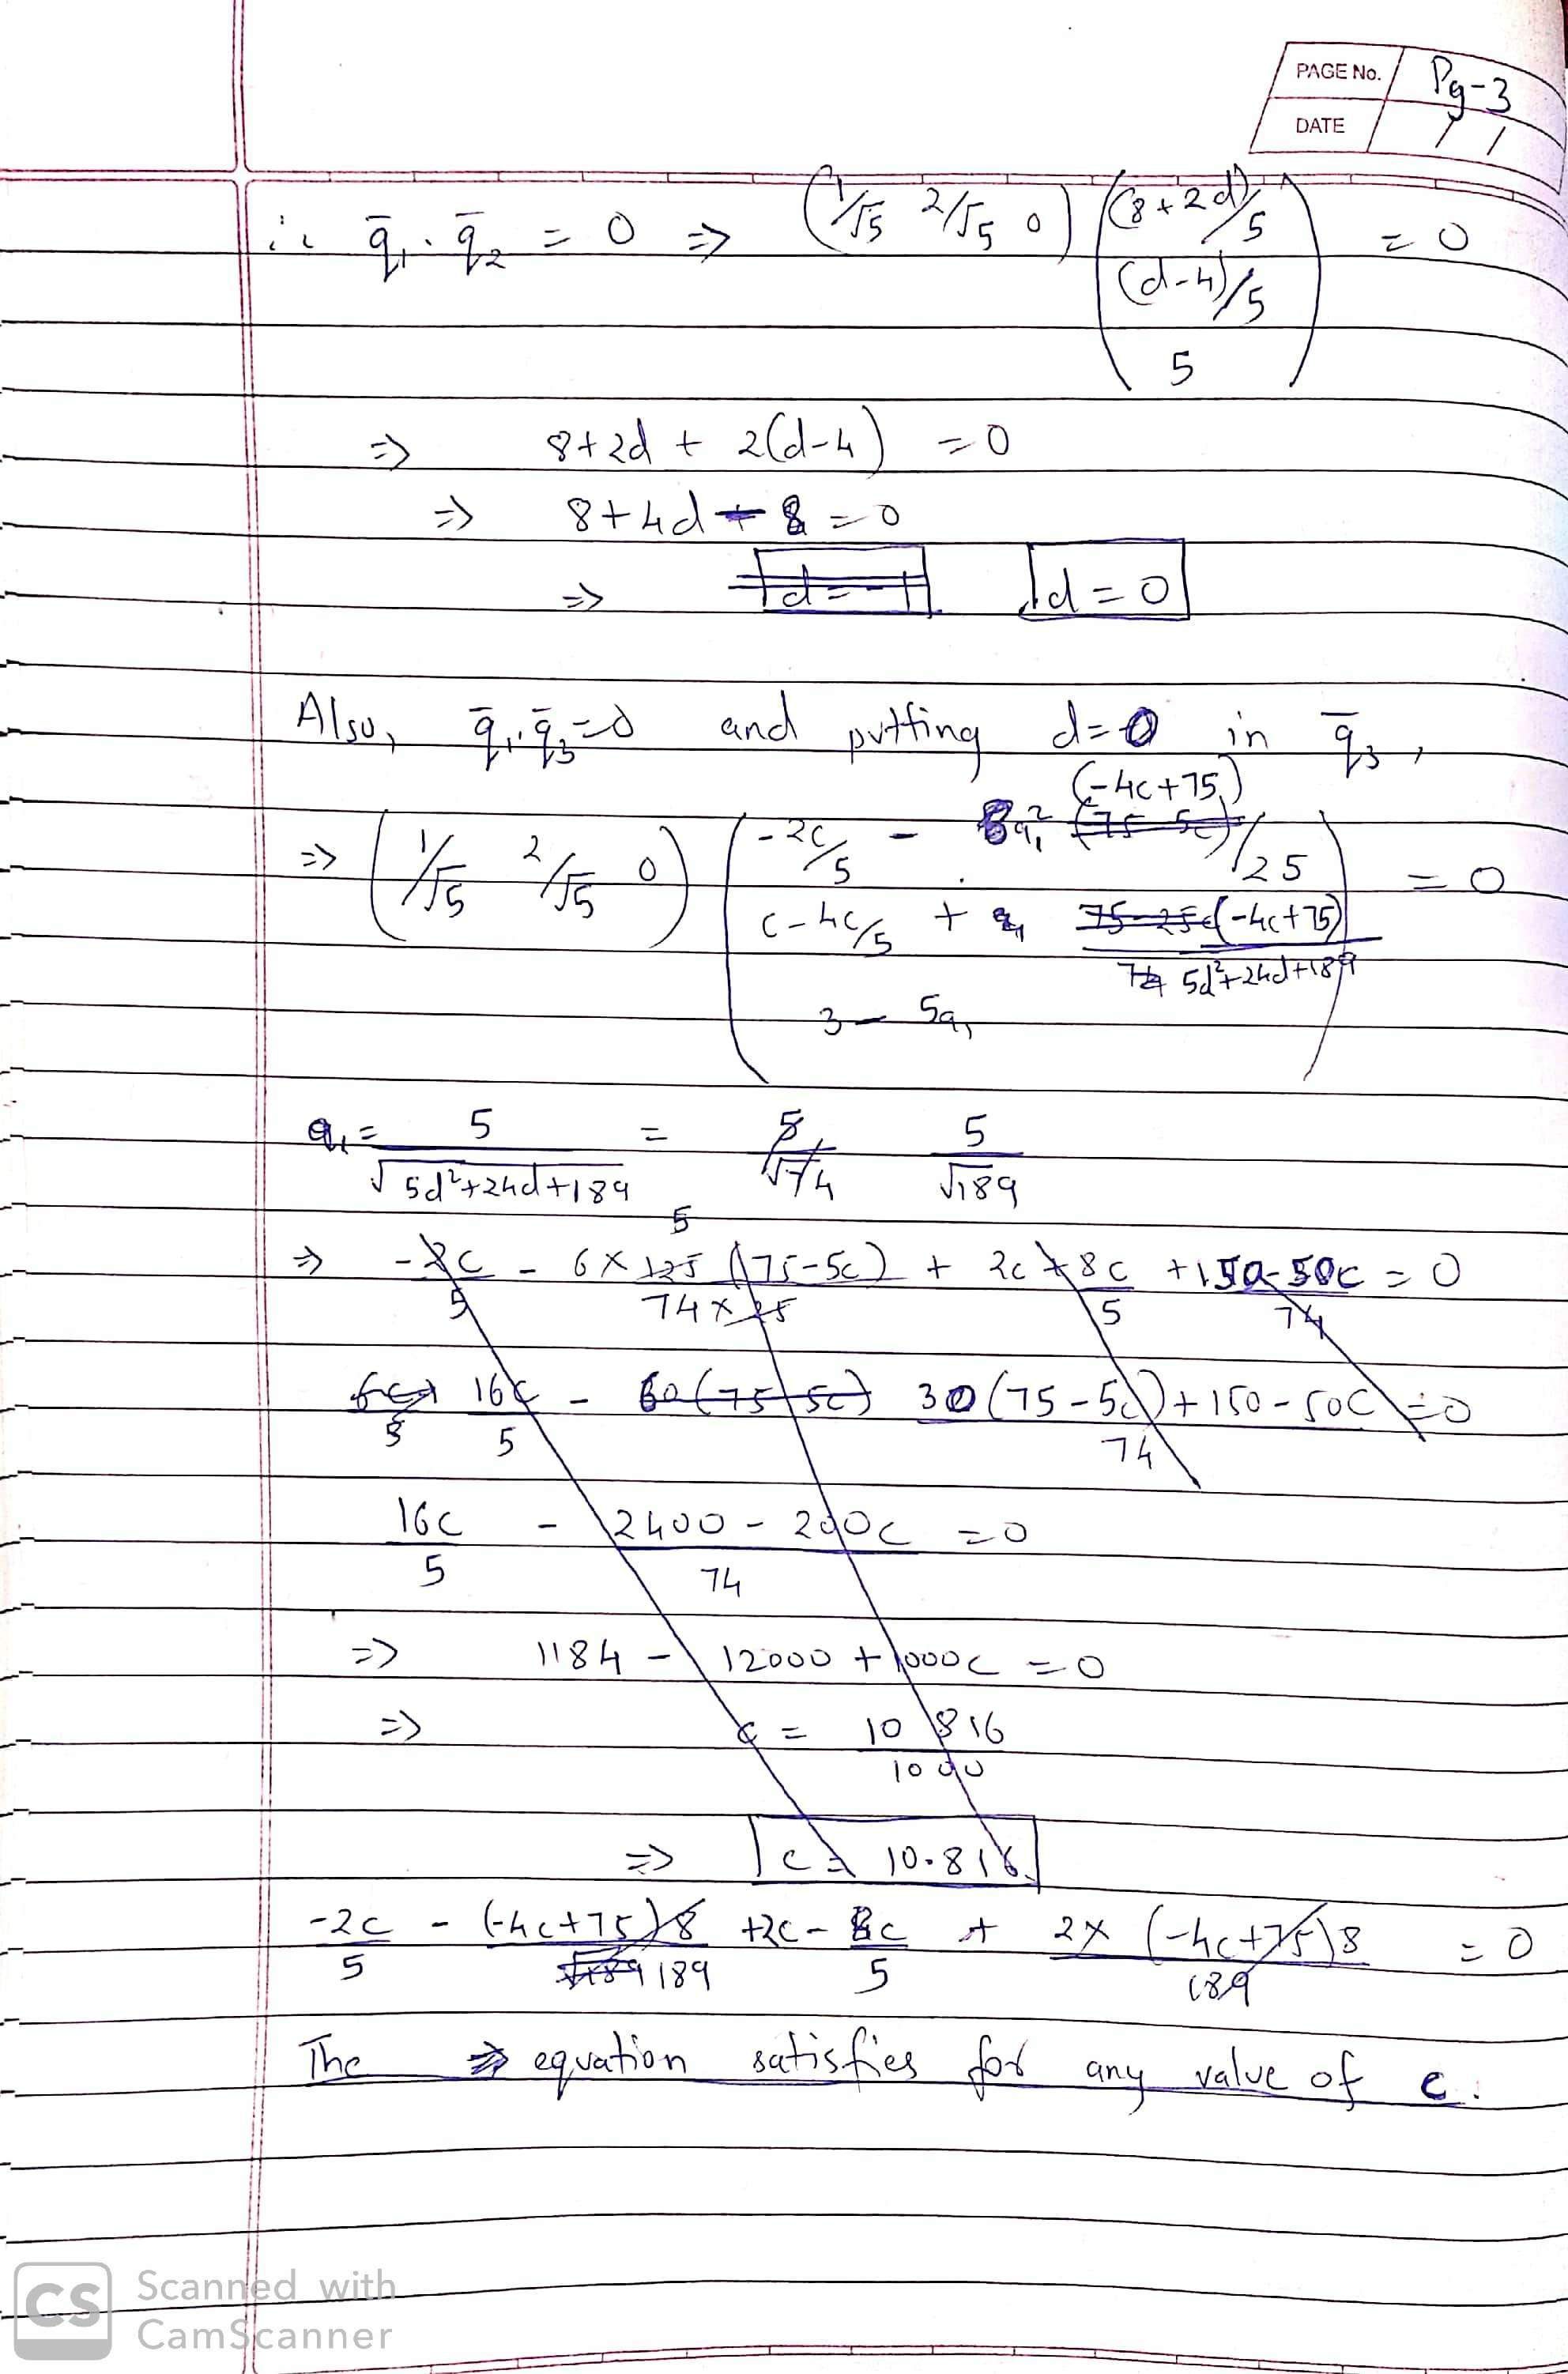 PAGE No. Pg-3
DATE / /
∴ q̄₁ . q̄₂ = 0 ⇒ (1/√5 2/√5 0) ((8+2d)/5
(d-4)/5
5) = 0
⇒ 8+2d + 2(d-4) = 0
⇒ 8+4d - 8 = 0
⇒ d = -1 d = 0
Also, q̄₁.q̄₃=0 and putting d=0 in q̄₃,
(-4c+75)
⇒ (1/√5 2/√5 0) (-2c/5 - 8q₁² (75-5c)/25
c-4c/5 + 75-25c (-4c+75)
74 5d²+24d+189
3 - 5q₁) = 0
q₁ = 5/√5d²+24d+189 = 5/√74 5/√189
⇒ -2c/5 - 6×125 (75-5c)/74×25 + 2c + 8c/5 + 150-50c/74 = 0
16c/5 - 60(75-5c) 30(75-5c)+150-50c/74 = 0
16c/5 - 2400-200c/74 = 0
⇒ 1184 - 12000 + 1000c = 0
⇒ c = 10816/1000
⇒ c = 10.816
-2c/5 - (-4c+75)8/189 +2c - 8c/5 + 2×(-4c+75)8/189 = 0
The ⇒ equation satisfies for any value of c.
CS Scanned with
CamScanner